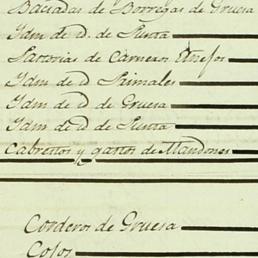 Baciadas de Borregas de Gruesa
Idm de d. de Punta
Partorias de Carneros Añejos
Idm de d Primales
Idm de d de Gruesa
Idm de d de Punta
Cabrettos y gastos de Mardones
Corderos de Gruesa
Cojos